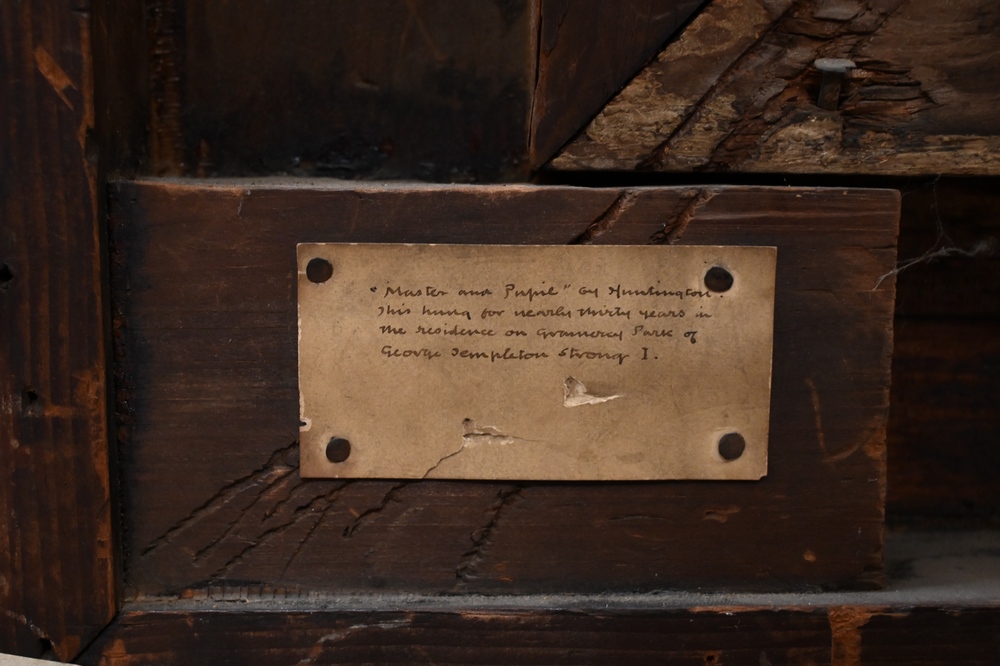 "Master and Pupil" by Huntington.
This hung for nearly thirty years in
the residence on Gramercy Park of
George Templeton Strong I.